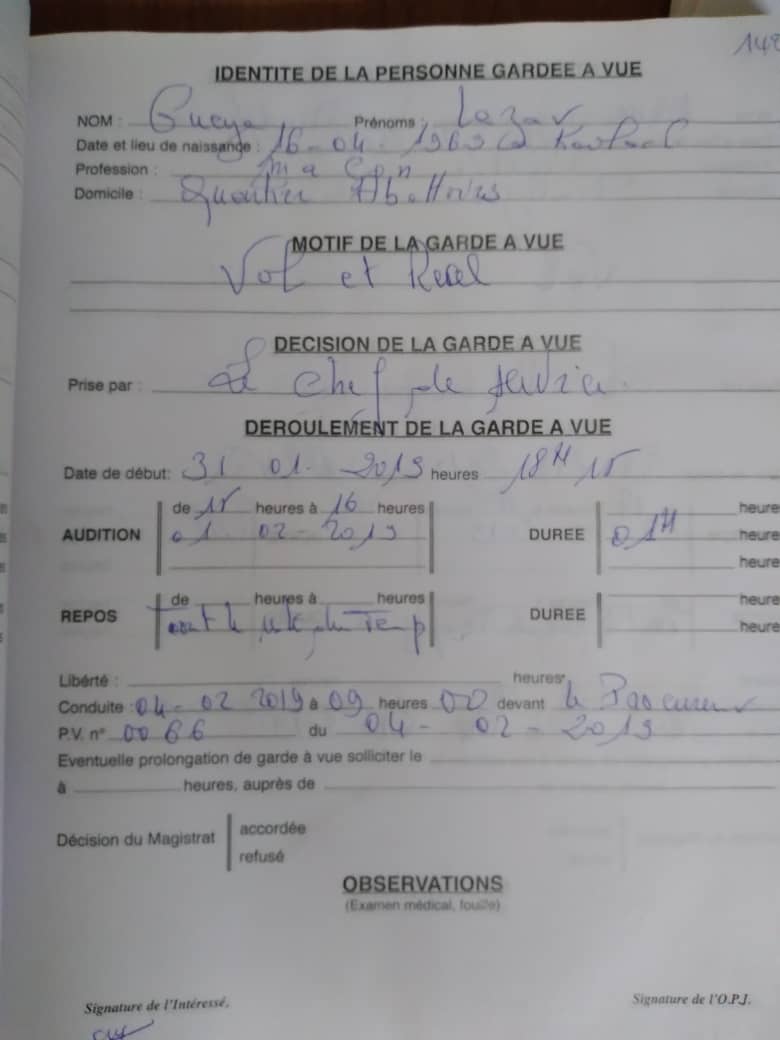 148
IDENTITE DE LA PERSONNE GARDEE A VUE
NOM : Gueye Prénoms : Lazar
Date et lieu de naissance : 16-04-1969 à
Profession : maçon
Domicile : Quartier Abattoirs
MOTIF DE LA GARDE A VUE
Vol et Recel
DECISION DE LA GARDE A VUE
Prise par : Le chef de service
DEROULEMENT DE LA GARDE A VUE
Date de début: 31 01. 2019 heures 18H 15
de 15 heures à 16 heures heure
AUDITION 01 02-2019 DUREE 01H heure
heure
de heures à heures heure
REPOS Tout le reste du Temp DUREE heure
Liberté : heures
Conduite 04-02 2019 à 09 heures 00 devant le Procureur
P.V. n° 0066 du 04-02-2019
Eventuelle prolongation de garde à vue solliciter le
à heures, auprès de
Décision du Magistrat accordée
refusé
OBSERVATIONS
(Examen médical, fouille)
Signature de l'Intéressé. Signature de l'O.P.J.